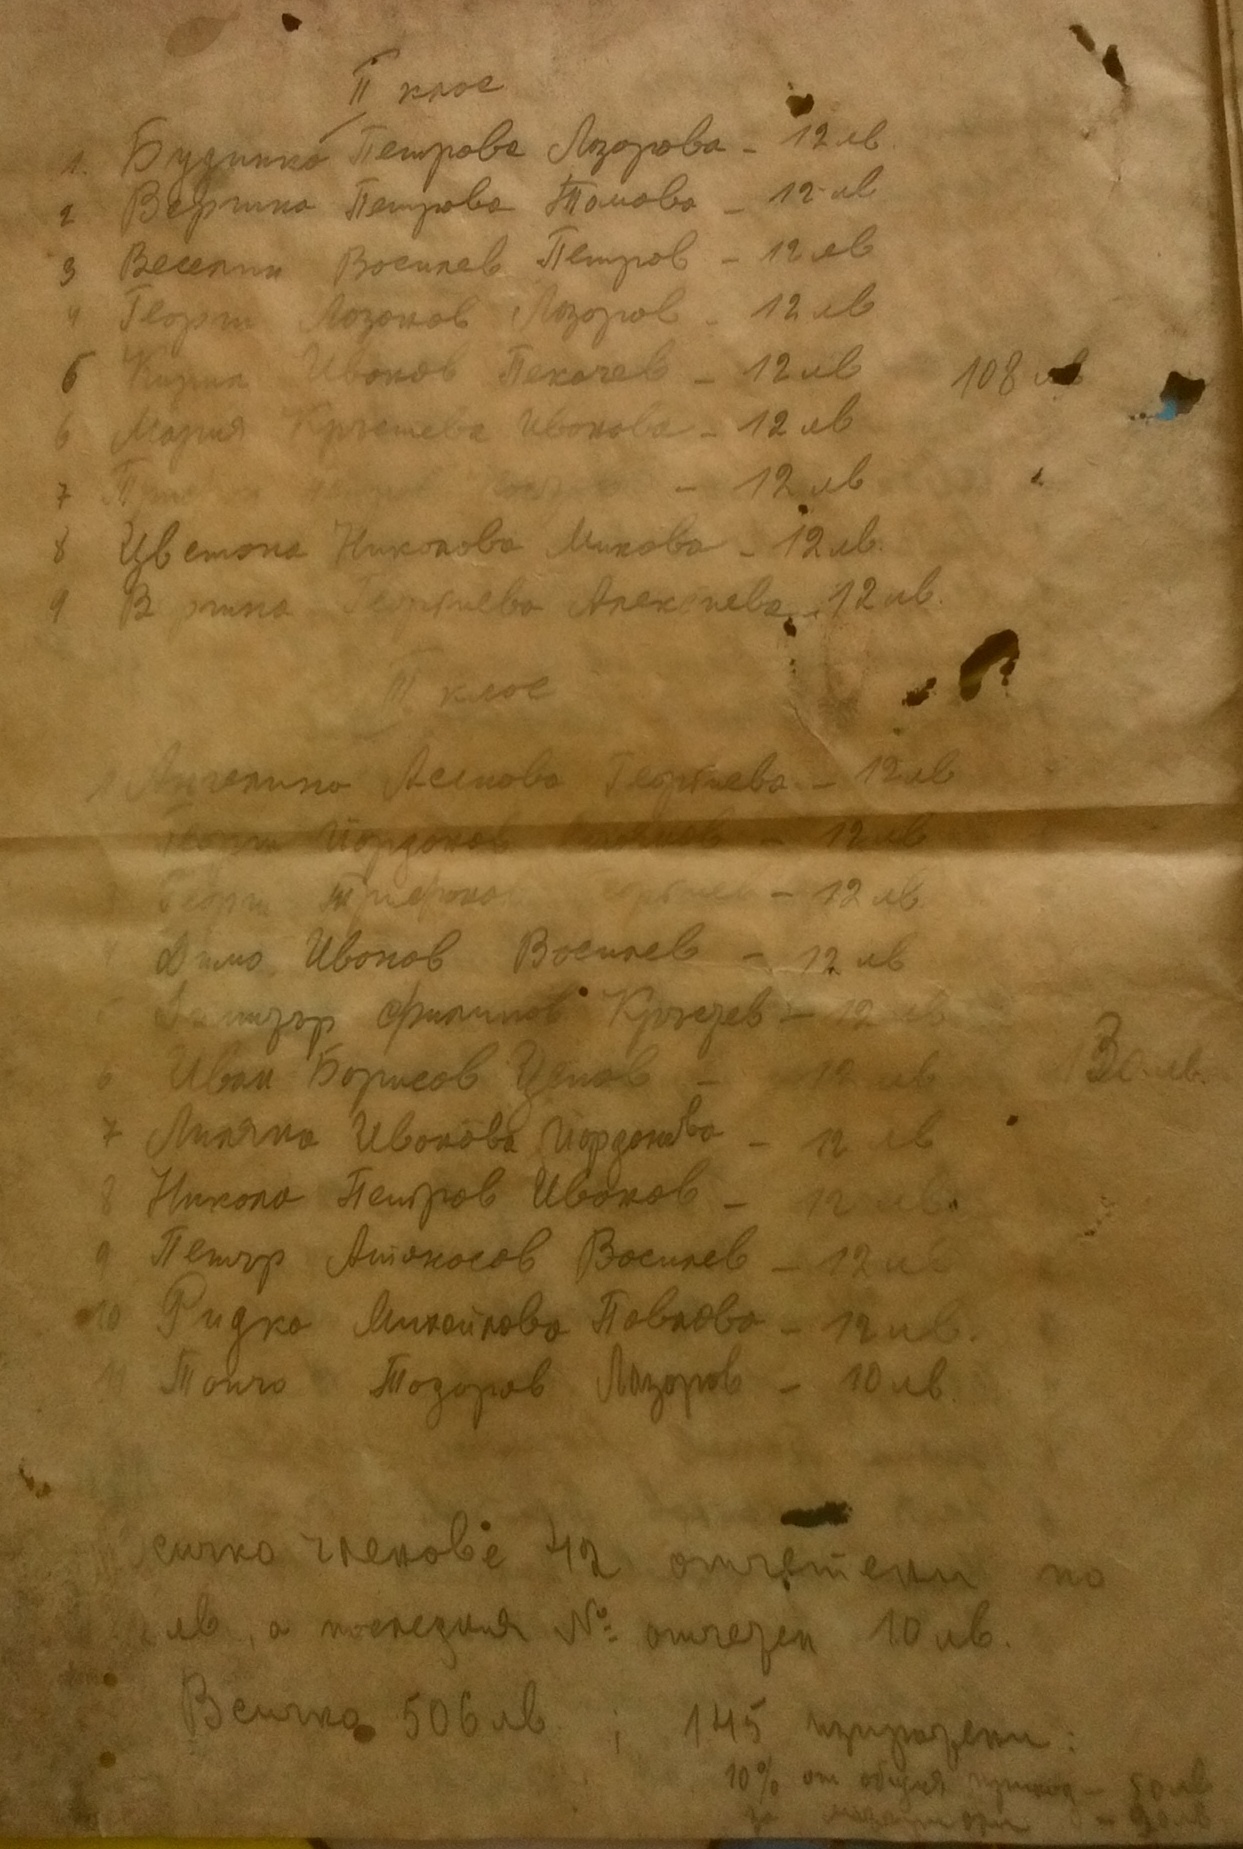 II клас
1. Будинка Петрова Лазарова - 12 лв.
2 Вергина Петрова Томова - 12 лв
3 Веселин Василев Петров - 12 лв
4 Георги Лазаров - 12 лв
5 Кирил Иванов Пекачев - 12 лв 108 лв
6 Мария Кръстева Иванова - 12 лв
7 - 12 лв
8 Цветана Николова Микова - 12 лв.
9 Георгиева Алексиева - 12 лв.
клас
1 Ангелина Асенова Георгиева - 12 лв
Георги Йорданов - 12 лв
3 Георги Трифонов Георгиев - 12 лв
4 Димо Иванов Василев - 12 лв
Филипов - 12 лв
6 Иван Борисов Ценов - 12 лв
7 Лиляна Иванова Йорданова - 12 лв
8 Никола Петров Иванов - 12 лв.
9 Петър Атанасов Василев - 12 лв
10 Радка Михайлова Павлова - 12 лв.
11 Тончо Тодоров Лазаров - 10 лв.
сичко членове 42 отчетени по
лв, а последния № отчезен 10 лв.
Всичко 506 лв ; 145 изразени:
10% от общия приход - 50 лв
за - лв